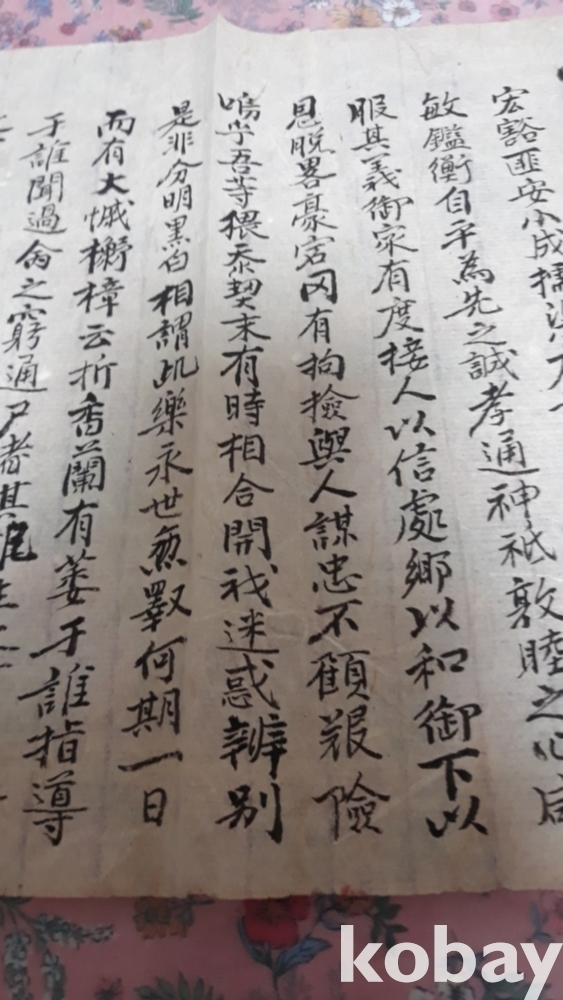 宏豁匪安小成
敏鑑衡自平為先之誠孝通神祗敦睦之心
服其義御家有度接人以信處鄉以和御下以
恩脱畧豪宕罔有拘撿與人謀忠不顧艱險
嗚乎吾等猥忝契末有時相合開我迷惑辨别
是非分明黑白相謂此樂永世無斁何期一日
而有大慽樟云折香蘭有萎于誰指導
于誰聞過命之窮通尸者其
kobay